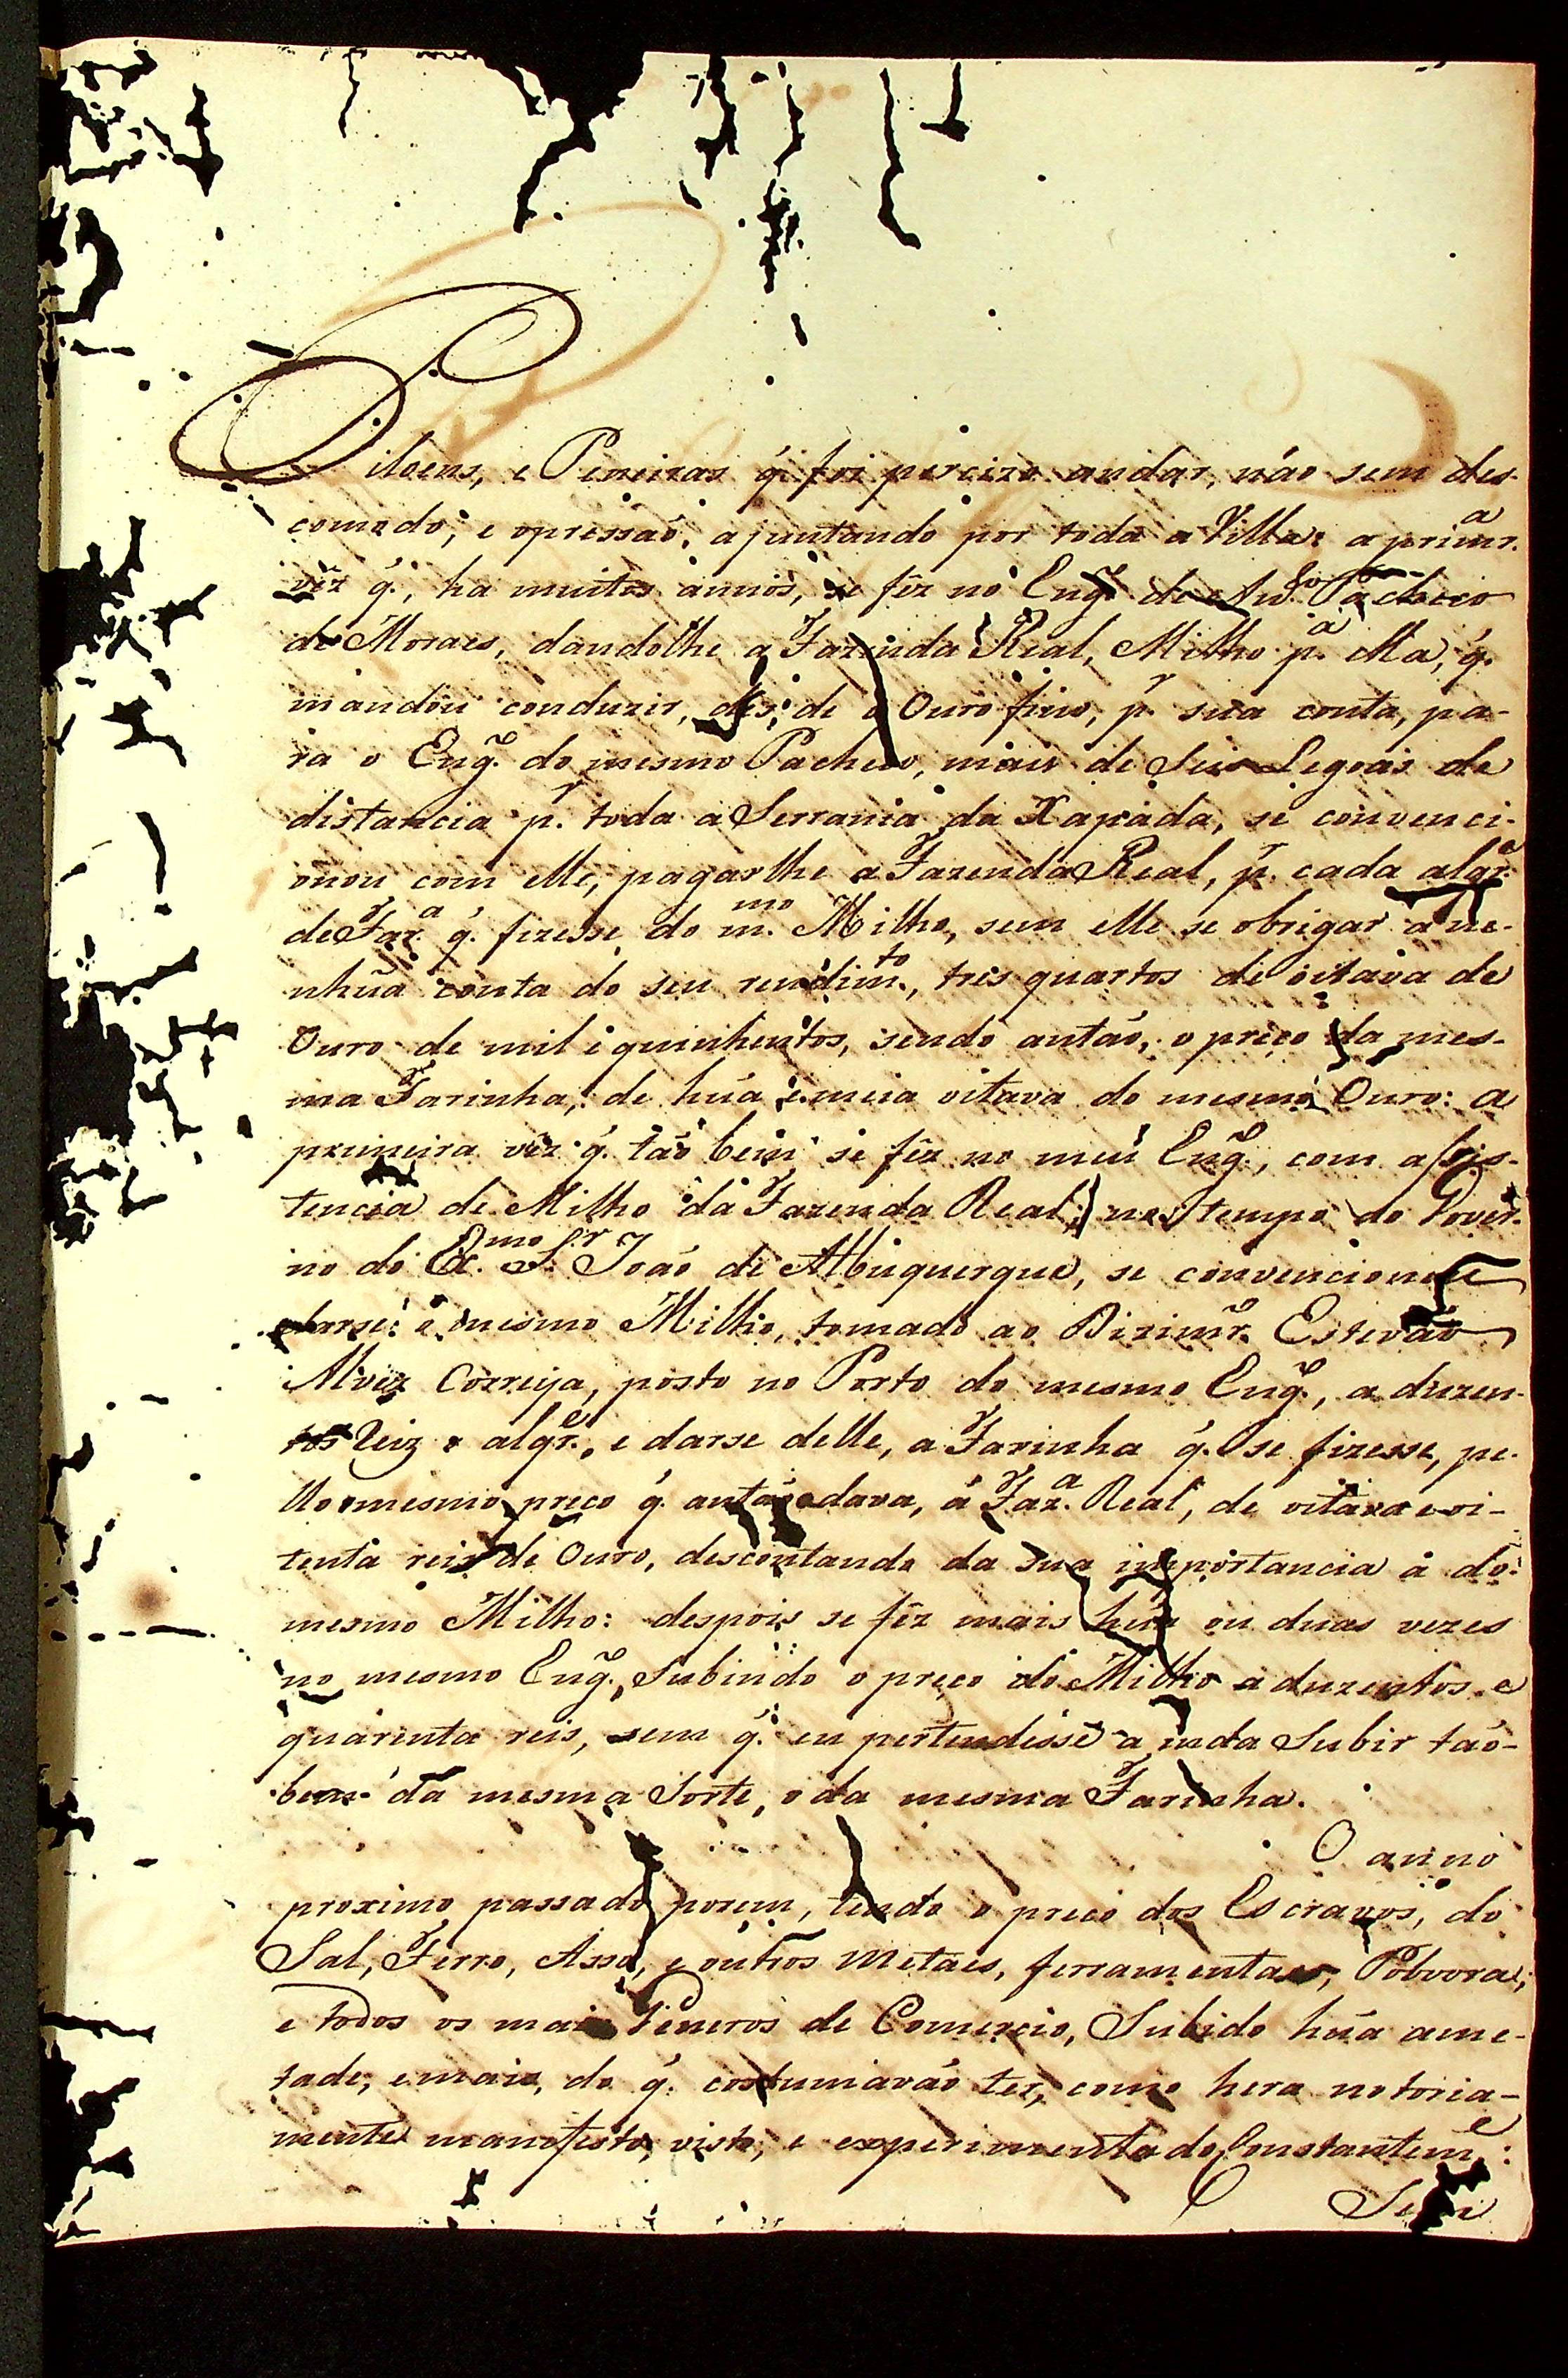 Piloens, e Peneiras q̃. foi percizo andar, não sem des-
comodo, e opressaõ, ajuntando por toda a Villa: a primr.ª
vêz q̃., ha muitos annos, se fêz no Eng.º de Ant.º Pacheco
de Moraes, dandolhe a Fazenda Real, Milho p.ª ella, q̃.
mandou conduzir, des,de o Ouro fino, p.r sua conta, pa-
ra o Eng.º do mesmo Pacheco, mais de Seis Legoas de
distancia p.r toda a Serrania da Xapada, se convenci-
onou com elle, pagarlhe a Fazenda Real, p.r cada alqr.e
de Far.ª q̃. fizesse do m.mo Milho, sem elle se obrigar a ne-
nhũa conta do seu rendim.to, tres quartos de oitava de
Ouro de mil e quinhentos, sendo antão, o preço da mes-
ma Farinha, de hũa e meia oitava do mesmo Ouro: a
primeira vêz q̃. tão bem se fêz no meu Eng.º, com assis-
tencia de Milho da Fazenda Real, no tempo do Gover-
no do Ex.mo S.r João de Albuquerque, se convencionou
darse o mesmo Milho, tomado ao Dizimr.º Estevão
Alvez Correya, posto no Porto do mesmo Eng.º, a duzen-
tos Reiz o alqr.e, e darse delle, a Farinha q̃. se fizesse, pe-
llo mesmo preço q̃. antão dava, á Faz.ª Real, de oitava e oi-
tenta reis de Ouro, descontando da sua importancia a do
mesmo Milho: despois se fêz mais hũa ou duas vezes
no mesmo Eng.º, Subindo o preço do Milho a duzentos e
quarenta reis, sem q̃. eu pertendesse a inda Subir tão-
bem da mesma Sorte, o da mesma Farinha.
O anno
proximo passado porem, tendo o preço dos Escravos, do
Sal, Ferro, Asso, e outros Metaes, ferramentas, Polvora,
e todos os mais Generos de Comercio, Subido hũa ame-
tade, e mais, do q̃. costumavão ter, como hera notoria-
mente manifesto, visto, e experimentado Constantem.e: